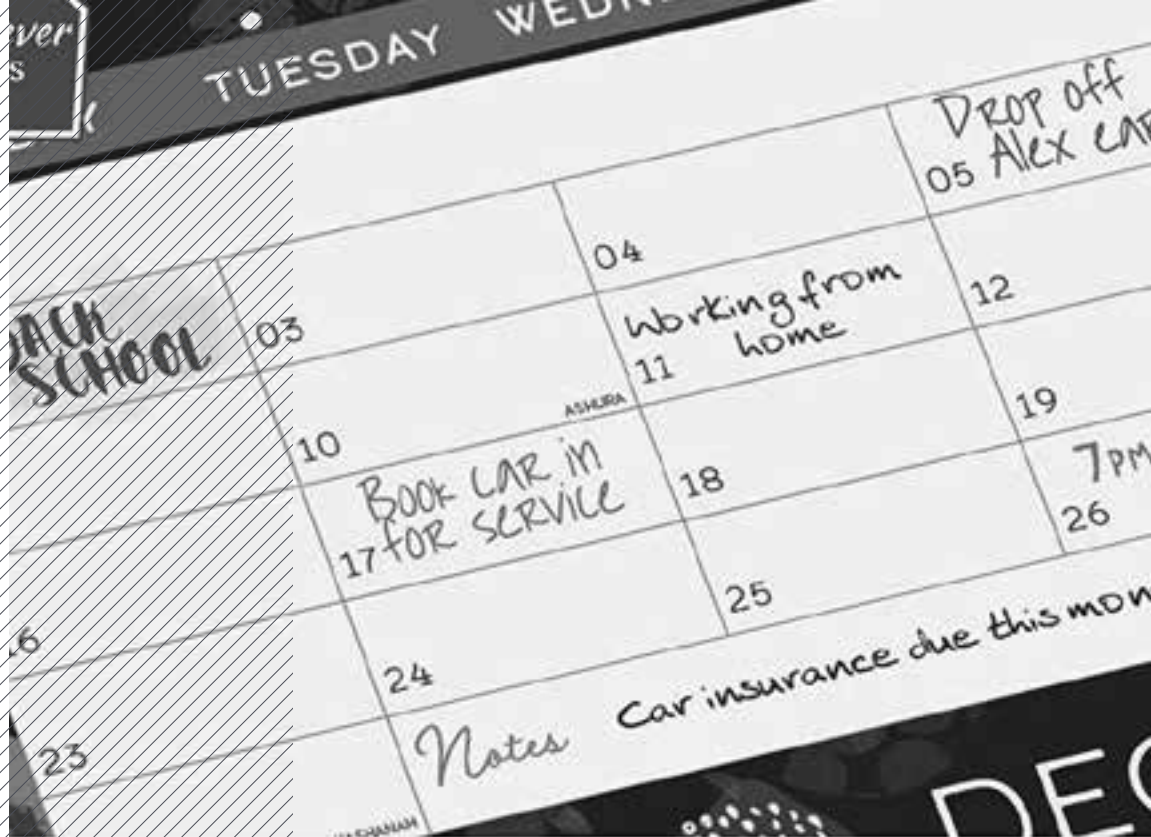 ver
s
TUESDAY
Drop off
05 Alex
04
BACK
SCHOOL
03
Working from
home
11
12
ASHURA
10
Book car in
for service
17
18
19
7PM
26
25
24
23
Notes
Car insurance due this
DEC